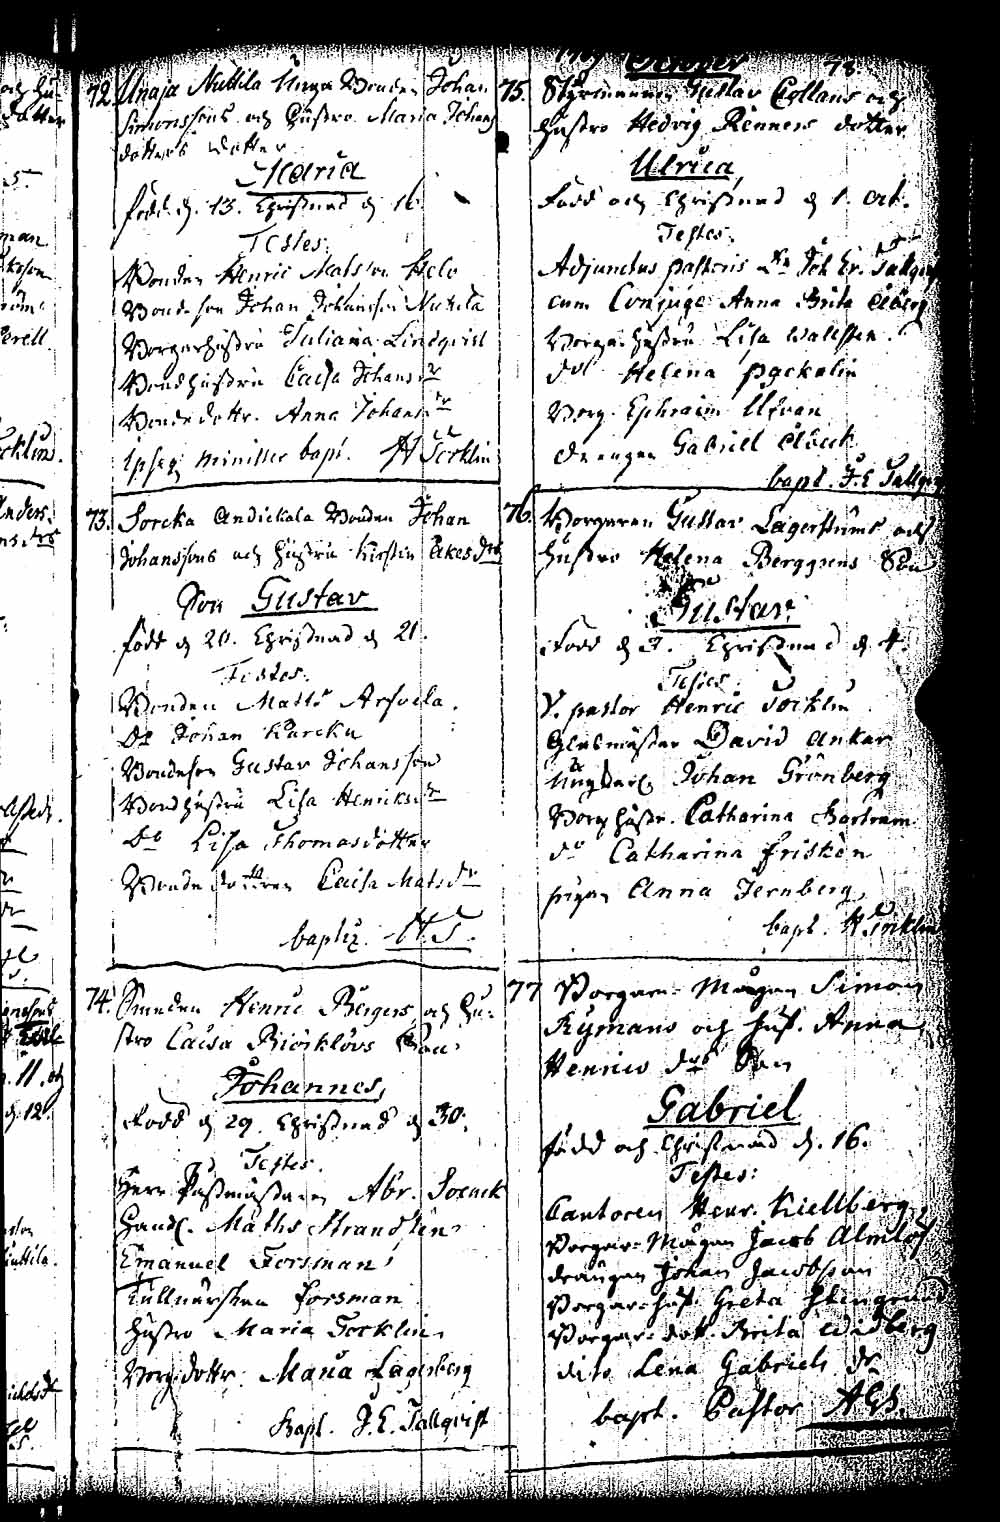 72. Unaja Nuttila Unga Bonden Johan
Simonssons och Hustro Maria Johans
dotters dotter
Maria
född d. 13. Christnad d 16
Testes.
Bonden Henric Matsson Helo
Bondeson Johan Johansson Nuttila
Borgarhustru Juliana Lindqvist
Bondhustru Caisa Johansdr
Bonde dottr. Anna Johansdr
Ipseq minister bapt. H Tocklin
73. Sorcka Andickala Bonden Johan
Johanssons och Hustru Kirstin Åkesdrs
Son Gustav
född d 20. Christnad d 21.
Testes.
Bonden Matts Arfvela.
Do Johan Karcku
Bondeson Gustav Johansson
Bondhustru Lisa Henriksdr
Do Lisa Thomasdotter
Bonde dottren Caisa Matsdr
baptiz. H. T.
74. Smeden Henric Bergers och Hu-
stro Caisa Biörklövs Son
Johannes
Född d 29. Christnad d 30.
Testes.
Herr Postmästaren Abr.
Handl. Maths Strandsten
Emanuel Forsman
Tullnärskan Forsman
Hustro Maria Tocklin
Borg. dottr. Maria Lagerberg
Bapt. J. E. Tallqvist
October
78.
75. Styrmannen Gustav Collans och
Hustro Hedvig Renners dotter
Ulrica
Född och Christnad d 1. Oct.
Testes.
Adjunctus pastoris Joh Er. Tallqvist
cum Conjuge Anna Brita
Borgar-hustru Lisa Wallsten.
do Helena Packalin
Borg. Ephraim Ulfvan
drengen Gabriel
bapt. J. E Tallqvist
76. Borgaren Gustav Lagerströms och
Hustro Helena Berggrens Son
Gustav.
Född d 3. Christnad d 4.
Testes.
V. pastor Henric Tocklin
Glasmästar David Ankar
Ungkarl Johan Grönberg
Borg hustr. Catharina Bartram
do Catharina Friskén
pigan Anna Jernberg,
bapt. H Tocklin
77 Borgare-Mågen Simon
Rymans och Hust. Anna
Henricsdrs Son
Gabriel
född och Christnad d. 16.
Testes:
Cantoren Henr. Kiellberg,
Borgare-Mågen Jacob Almlöf
drängen Johan Jacobsson
Borgare-Hust. Greta Stengrund
Borgare-dott. Brita Widberg
dito Lena Gabriels dr
bapt. Pastor AGS.